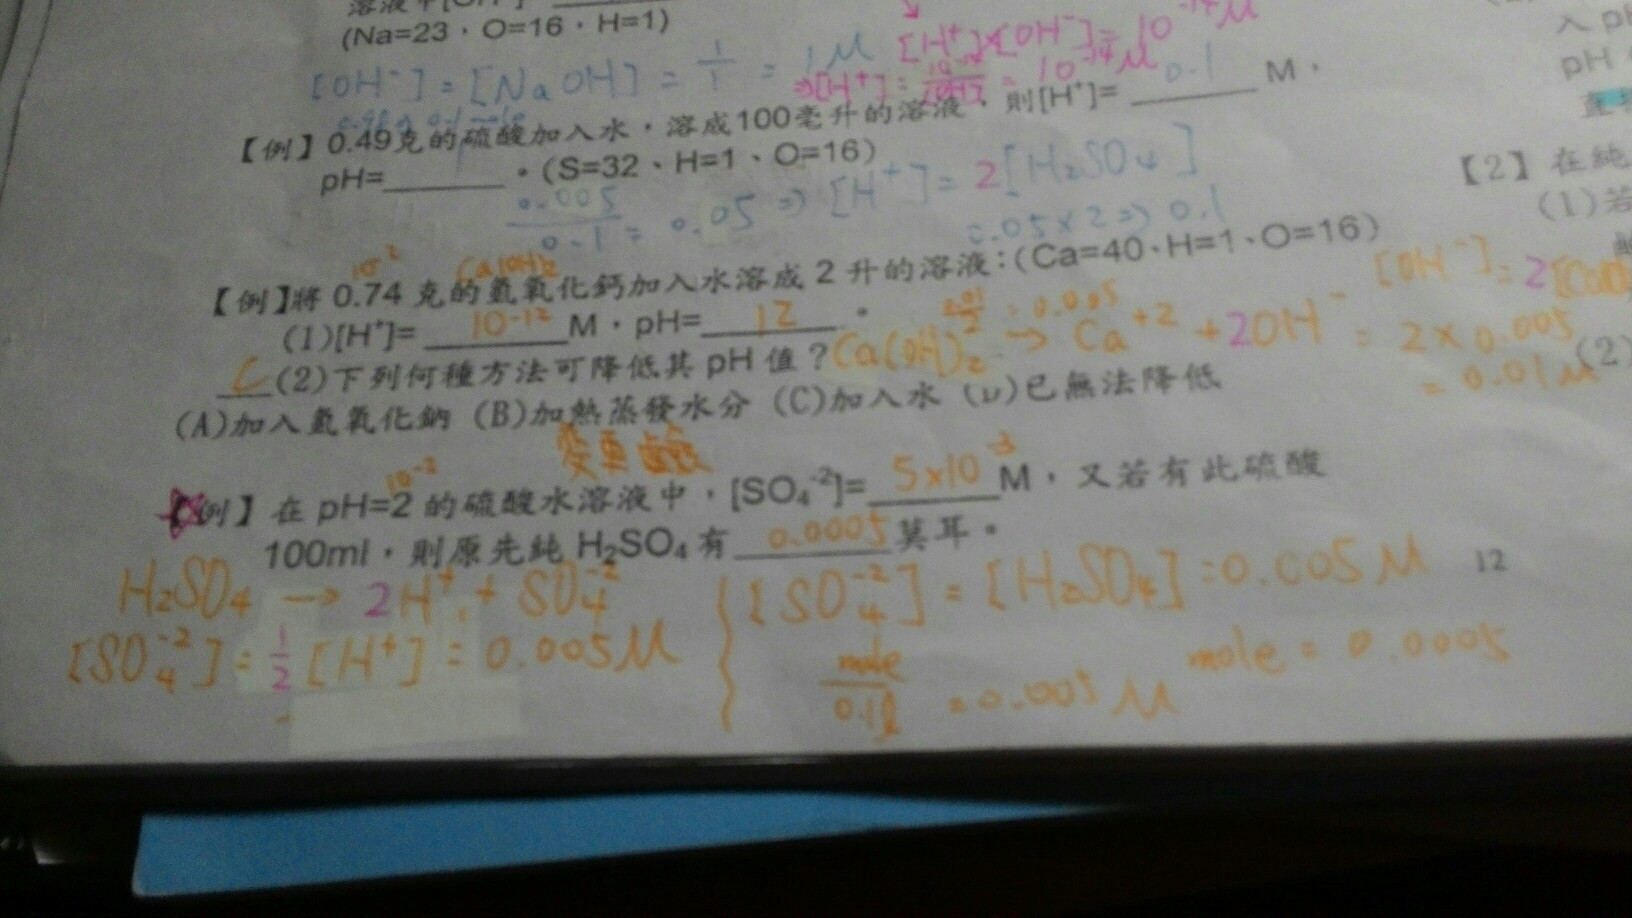 溶液中[OH⁻]
(Na=23，O=16，H=1)
[H⁺]×[OH⁻]=10⁻¹⁴M
[OH⁻]=[NaOH]=1/1=1M
⇒[H⁺]= =10⁻¹⁴M
【例】0.49克的硫酸加入水，溶成100毫升的溶液，則[H⁺]=0.1 M，
pH=______。(S=32、H=1、O=16)
0.005/0.1=0.05⇒[H⁺]=2[H₂SO₄]
0.05×2⇒0.1
10⁻² Ca(OH)₂
【例】將 0.74 克的氫氧化鈣加入水溶成 2 升的溶液：(Ca=40、H=1、O=16)
(1)[H⁺]= 10⁻¹² M，pH= 12 。
0.01/2=0.005
[OH⁻]=2
C (2)下列何種方法可降低其 pH 值？
Ca(OH)₂→Ca⁺²+2OH⁻
=2×0.005
=0.01M
(A)加入氫氧化鈉 (B)加熱蒸發水分 (C)加入水 (D)已無法降低
變更鹼
10⁻²
【例】在 pH=2 的硫酸水溶液中，[SO₄⁻²]= 5×10⁻³ M，又若有此硫酸
100ml，則原先純 H₂SO₄有 0.0005 莫耳。
H₂SO₄→2H⁺+SO₄⁻²
[SO₄⁻²]=1/2[H⁺]=0.005M
[SO₄⁻²]=[H₂SO₄]=0.005M
mole/0.1l=0.005M
mole=0.0005
12
入 pH
pH
【2】在純
(1)若
(2)